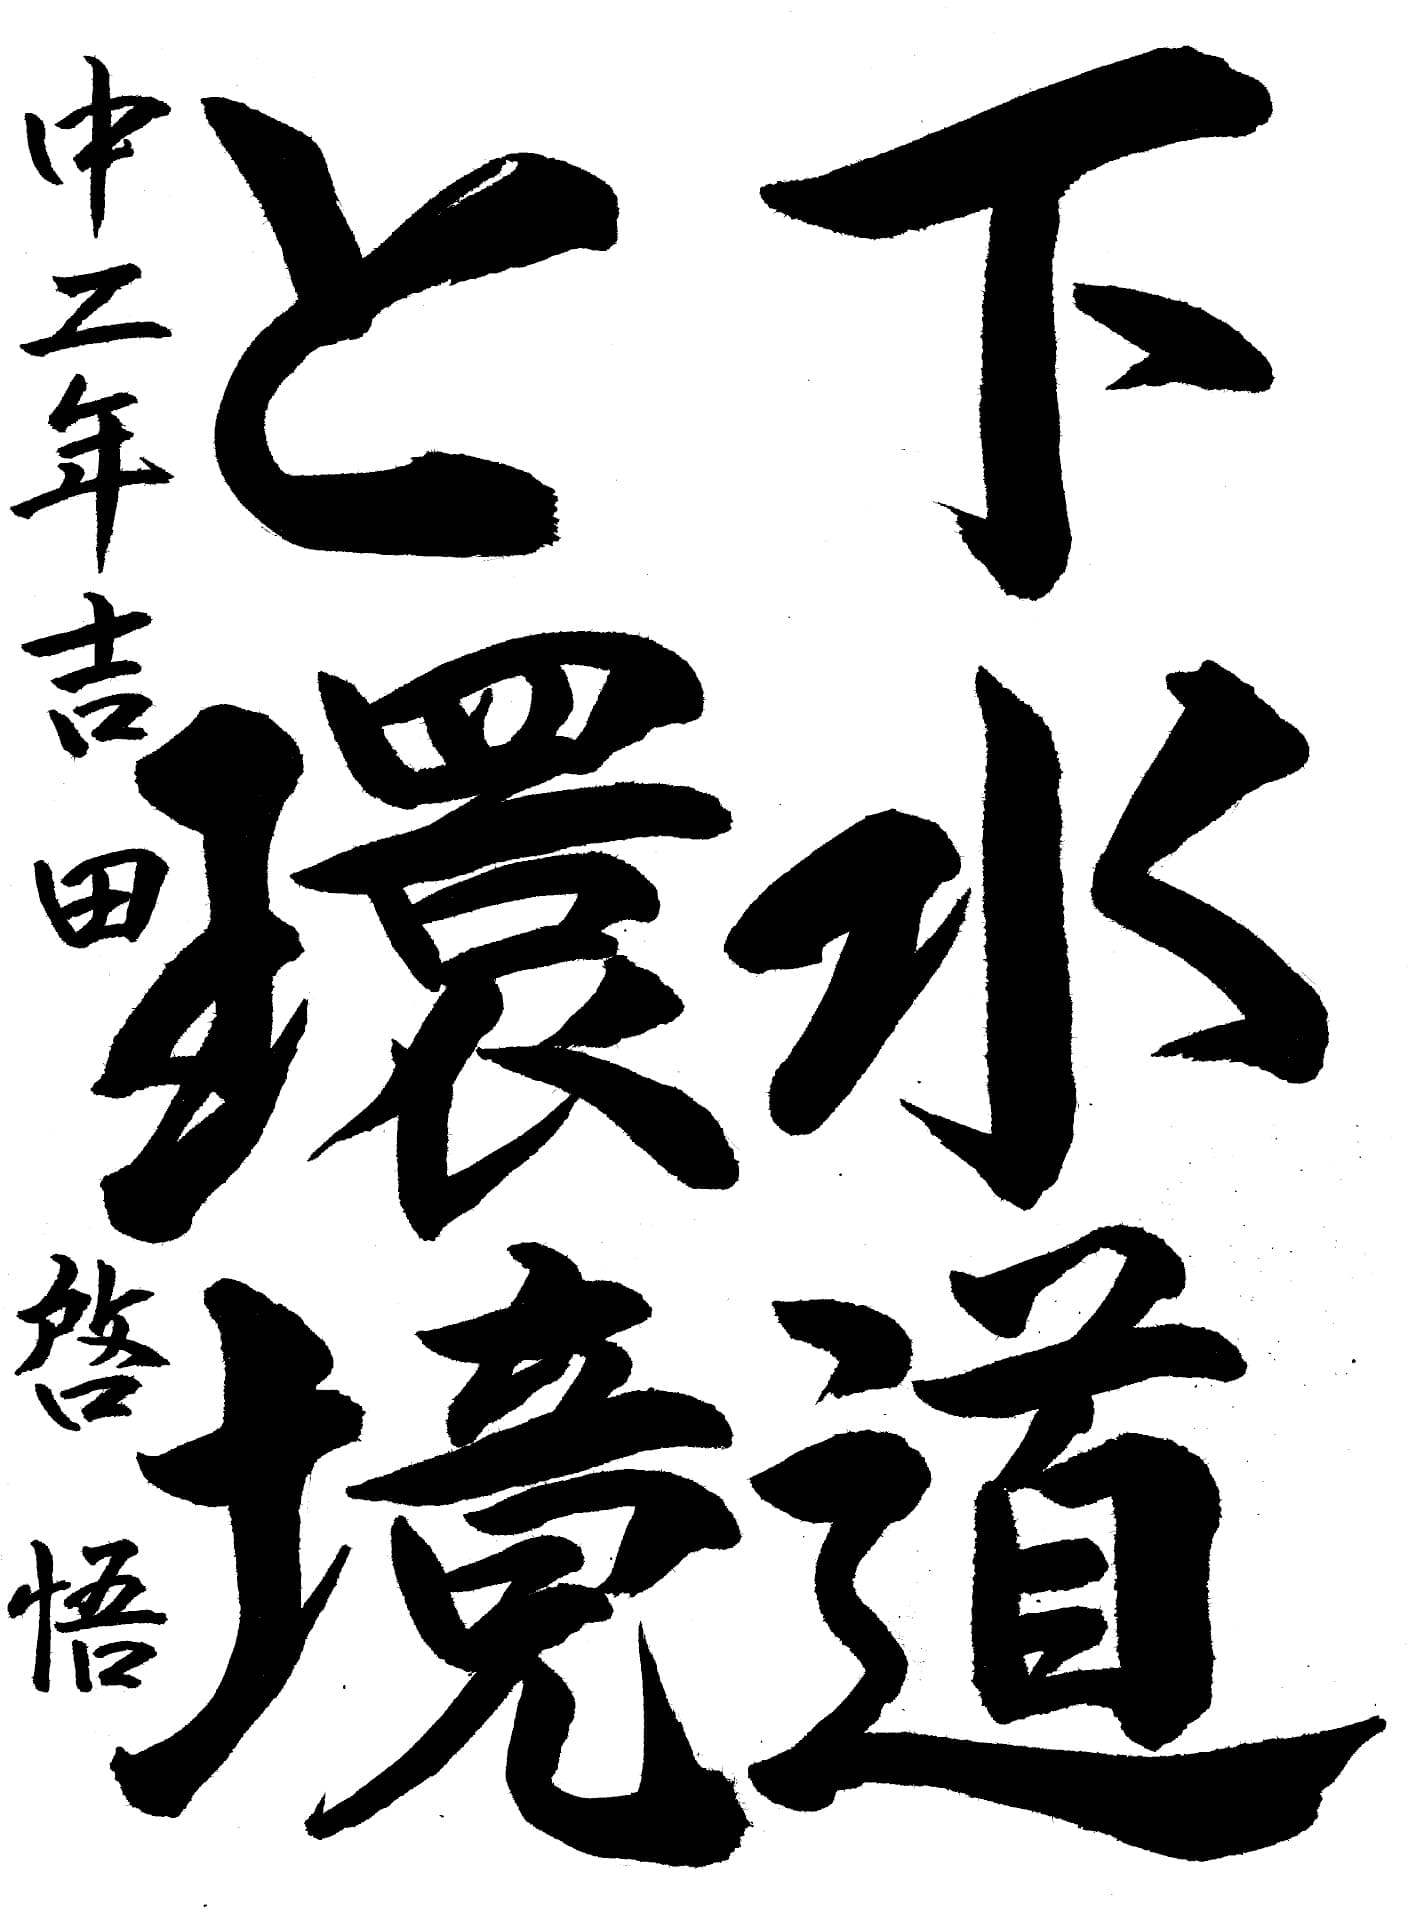 下水道
と環境
中二年吉田啓悟